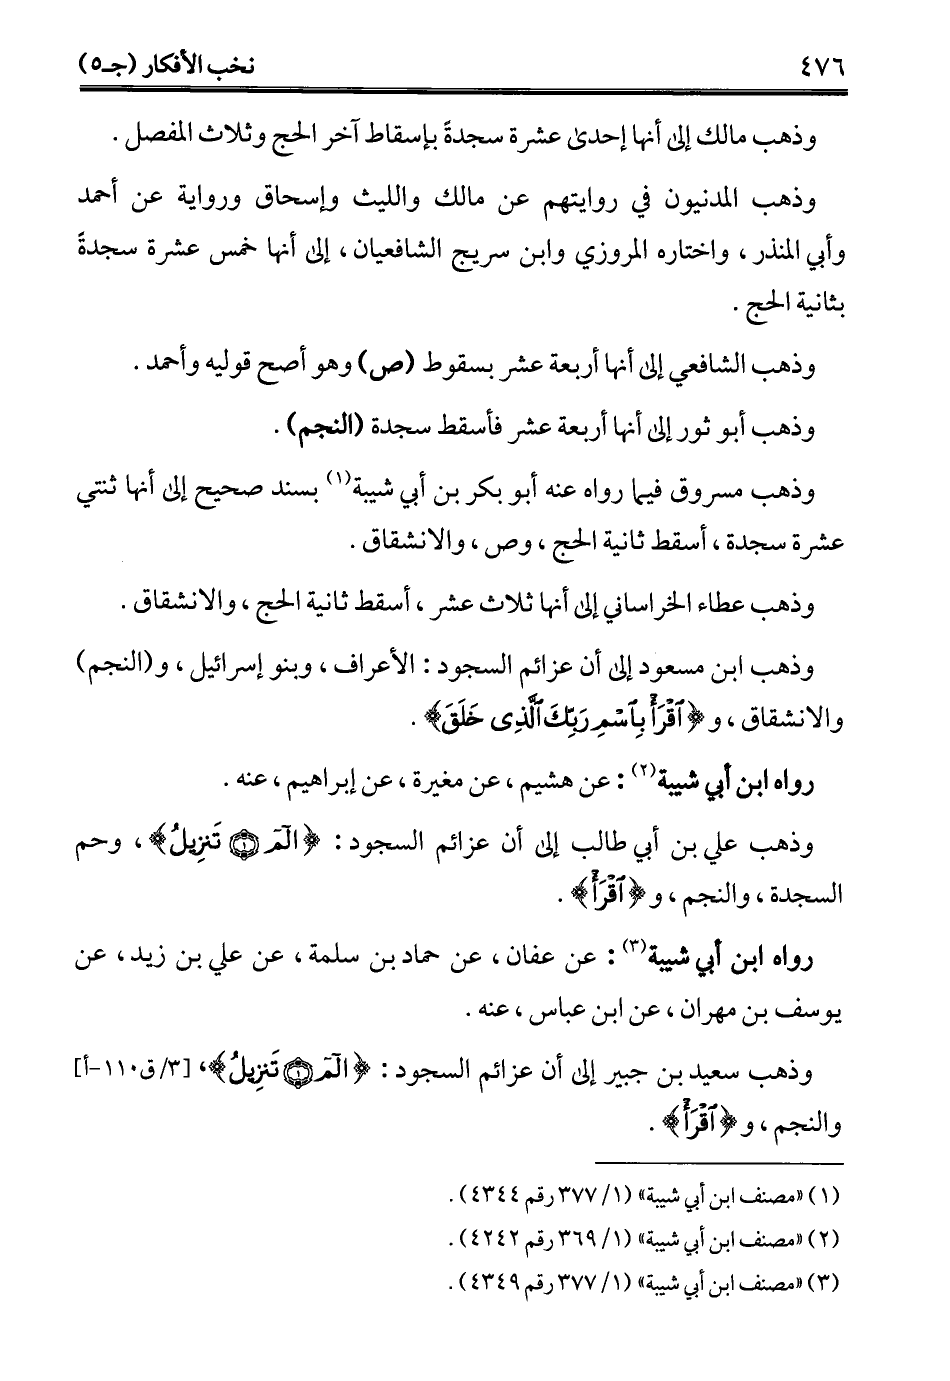 ٤٧٦ نخب الأفكار (جـ٥)
وذهب مالك إلى أنها إحدى عشرة سجدةً بإسقاط آخر الحج وثلاث المفصل .
وذهب المدنيون في روايتهم عن مالك والليث وإسحاق ورواية عن أحمد
وأبي المنذر ، واختاره المروزي وابن سريج الشافعيان ، إلى أنها خمس عشرة سجدةً
بثانية الحج .
وذهب الشافعي إلى أنها أربعة عشر بسقوط (ص) وهو أصح قوليه وأحمد .
وذهب أبو ثور إلى أنها أربعة عشر فأسقط سجدة (النجم) .
وذهب مسروق فيما رواه عنه أبو بكر بن أبي شيبة(١) بسند صحيح إلى أنها ثنتي
عشرة سجدة ، أسقط ثانية الحج ، وص ، والانشقاق .
وذهب عطاء الخراساني إلى أنها ثلاث عشر ، أسقط ثانية الحج ، والانشقاق .
وذهب ابن مسعود إلى أن عزائم السجود : الأعراف ، وبنو إسرائيل ، و(النجم)
والانشقاق ، و ﴿ٱقْرَأْ بِٱسْمِ رَبِّكَ ٱلَّذِى خَلَقَ﴾ .
رواه ابن أبي شيبة(٢) : عن هشيم ، عن مغيرة ، عن إبراهيم ، عنه .
وذهب علي بن أبي طالب إلى أن عزائم السجود : ﴿الٓمٓ ۝١ تَنزِيلُ﴾ ، وحم
السجدة ، والنجم ، و ﴿ٱقْرَأْ﴾ .
رواه ابن أبي شيبة(٣) : عن عفان ، عن حماد بن سلمة ، عن علي بن زيد ، عن
يوسف بن مهران ، عن ابن عباس ، عنه .
وذهب سعيد بن جبير إلى أن عزائم السجود : ﴿الٓمٓ ۝١ تَنزِيلُ﴾ ، [٣/ق١١٠-أ]
والنجم ، و ﴿ٱقْرَأْ﴾ .
(١) «مصنف ابن أبي شيبة» (١/ ٣٧٧ رقم ٤٣٤٤) .
(٢) «مصنف ابن أبي شيبة» (١/ ٣٦٩ رقم ٤٢٤٢) .
(٣) «مصنف ابن أبي شيبة» (١/ ٣٧٧ رقم ٤٣٤٩) .